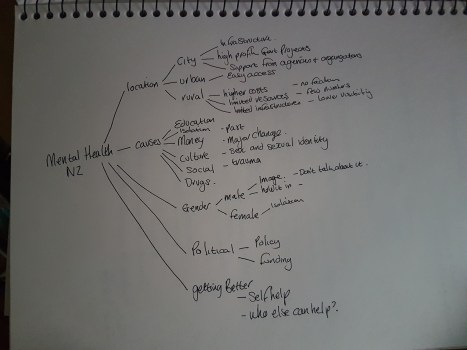 Mental Health
NZ
location
City
infrastructure.
high profile Govt Programs
Support from agencies + organisations
urban
Easy access
rural
higher costs - no
limited resources - few numbers
limited infrastructures - lower visibility
causes
Education
Isolation
Money
Culture
Social
Drugs.
- Past
- Major change.
- Self and sexual identity
- trauma
Gender
male
Image. - Don't talk about it.
hold it in -
female
Isolation
Political
Policy
funding
getting Better
- Self help
- who else can help?.